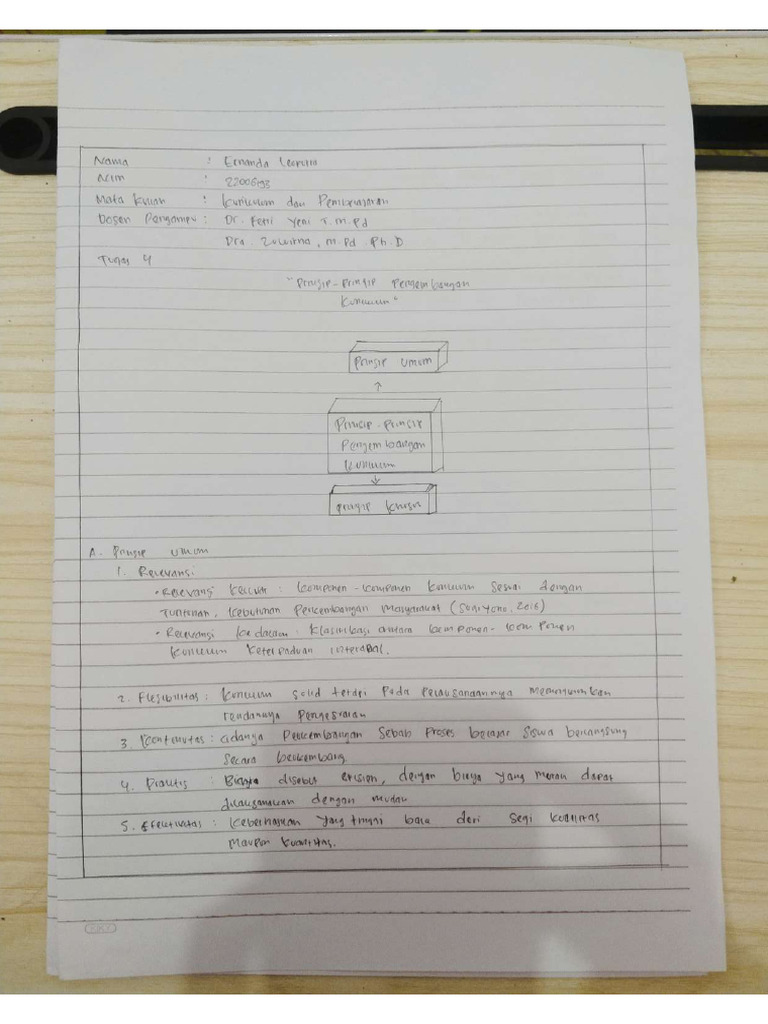 Nama : Ernanda
Nim : 22006193
Mata Kuliah : Kurikulum dan Pembelajaran
Dosen Pengampu : Dr. Fetri Yeni J. M.Pd
Dra. Zuwirna, M.Pd. Ph.D
Tugas 4
"Prinsip-Prinsip Pengembangan
Kurikulum"
Prinsip Umum
↑
Prinsip-Prinsip
Pengembangan
Kurikulum
↓
Prinsip Khusus
A. Prinsip Umum
1. Relevansi
• Relevansi keluar : Komponen-komponen kurikulum sesuai dengan
Tuntunan, kebutuhan Perkembangan Masyarakat (Sugiyono, 2016)
• Relevansi ke dalam : antara komponen-komponen
kurikulum keterpaduan internal.
2. Flesibilitas : Kurikulum solid tetapi Pada Pelaksanaannya memungkinkan
Pengesraian
3. Kontinuitas : adanya Perkembangan sebab Proses belajar siswa berlangsung
secara berkembang
4. Praktis : Biasa disebut efisien, dengan biaya yang murah dapat
dilaksanakan dengan mudah
5. Efektivitas : Keberhasilan yang tinggi baik dari segi kualitas
maupun kuantitas.
KKY